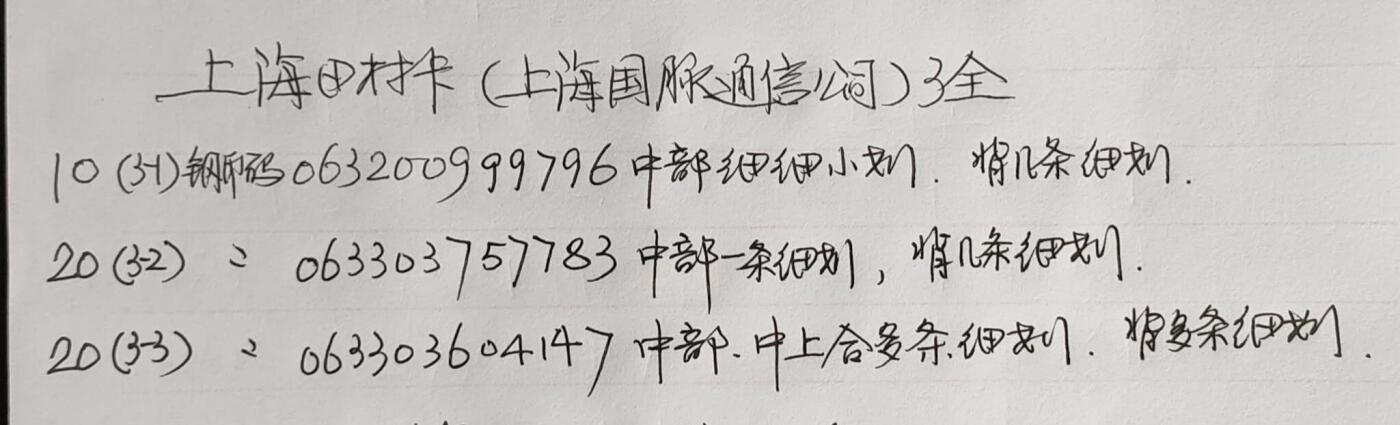 上海田村卡(上海国脉通信公司)3全
10(3-1)钢印码063200999796中部细细小划.背几条细划.
20(3-2) 〃 063303757783中部一条细划,背几条细划.
20(3-3) 〃 063303604147中部.中上含多条细划.背多条细划.